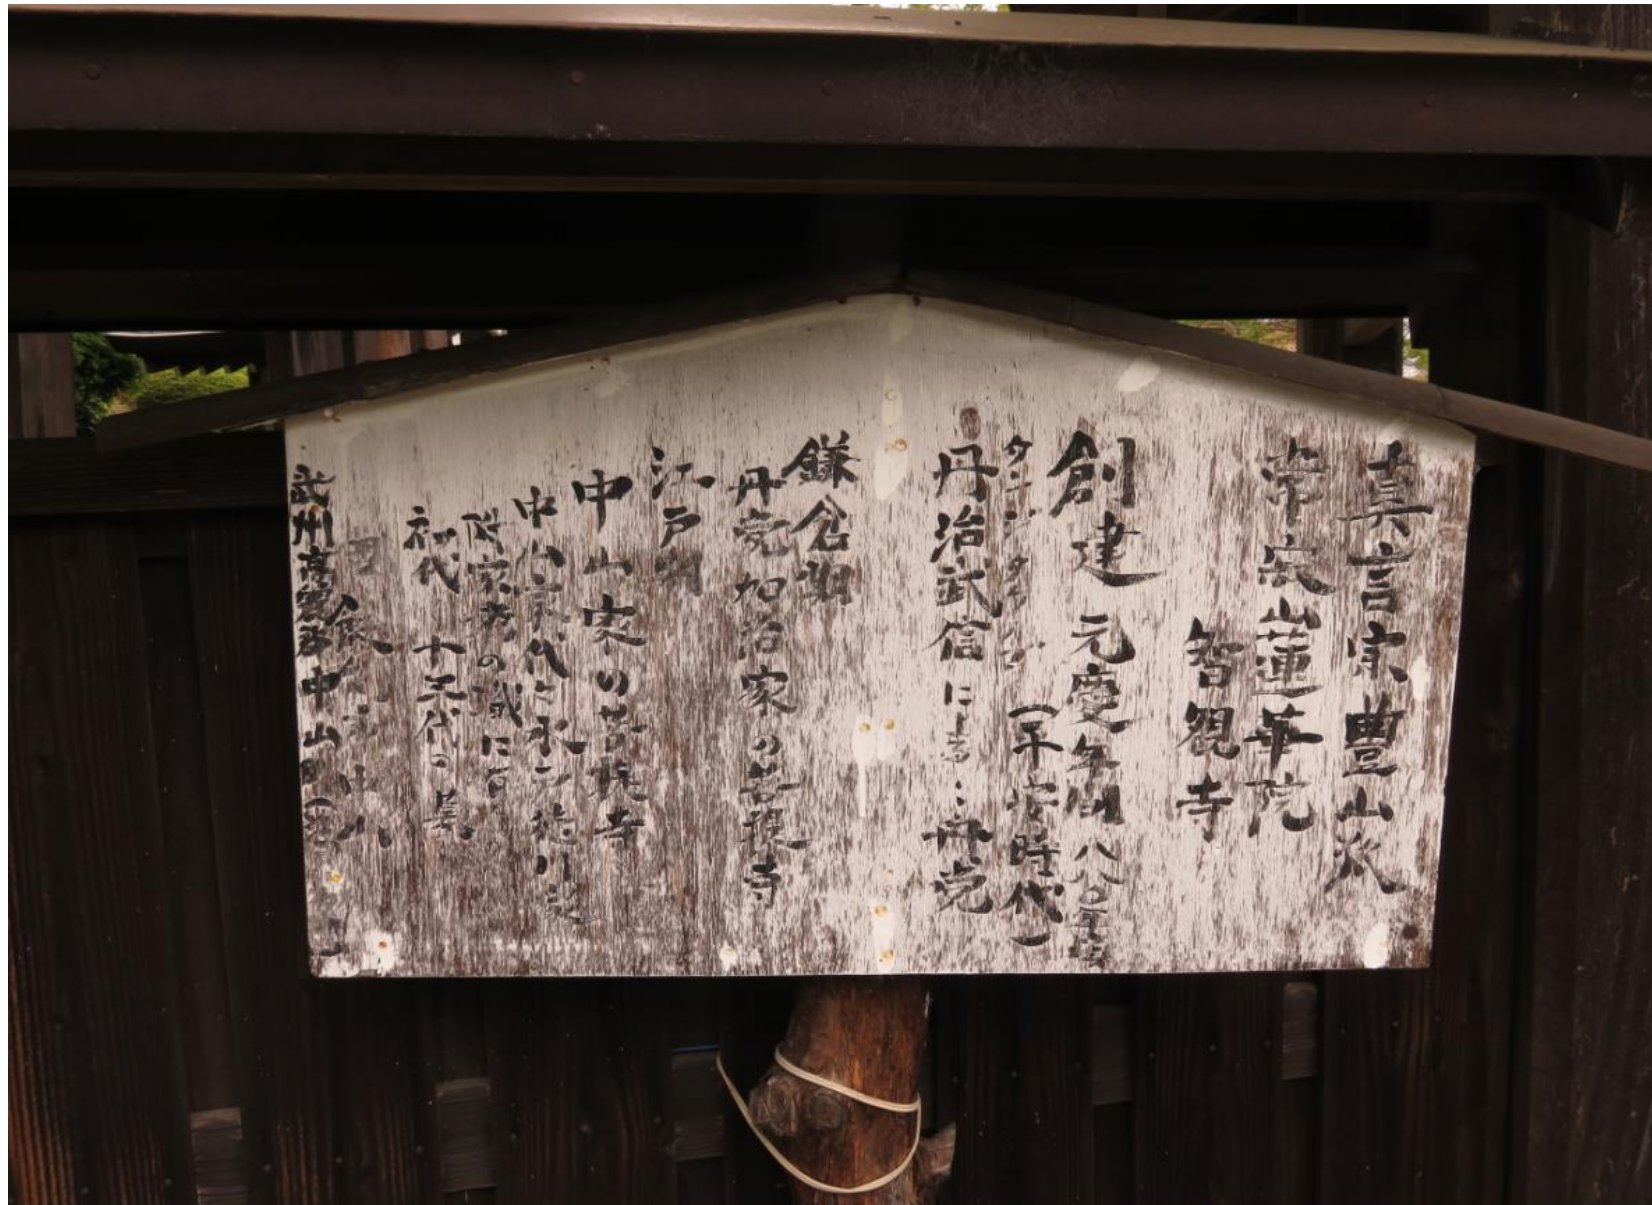 真言宗豊山派
常寂山蓮華院
智観寺
創建 元慶年間 八八〇年
(平安時代)
タンジ タケノブ
丹治武信による… 丹党
鎌倉期
丹党加治家の菩提寺
江戸期
中山家の菩提寺
中山家代々水戸徳川
附家老の職に
初代 十三代の墓
飯
武州高麗郡中山